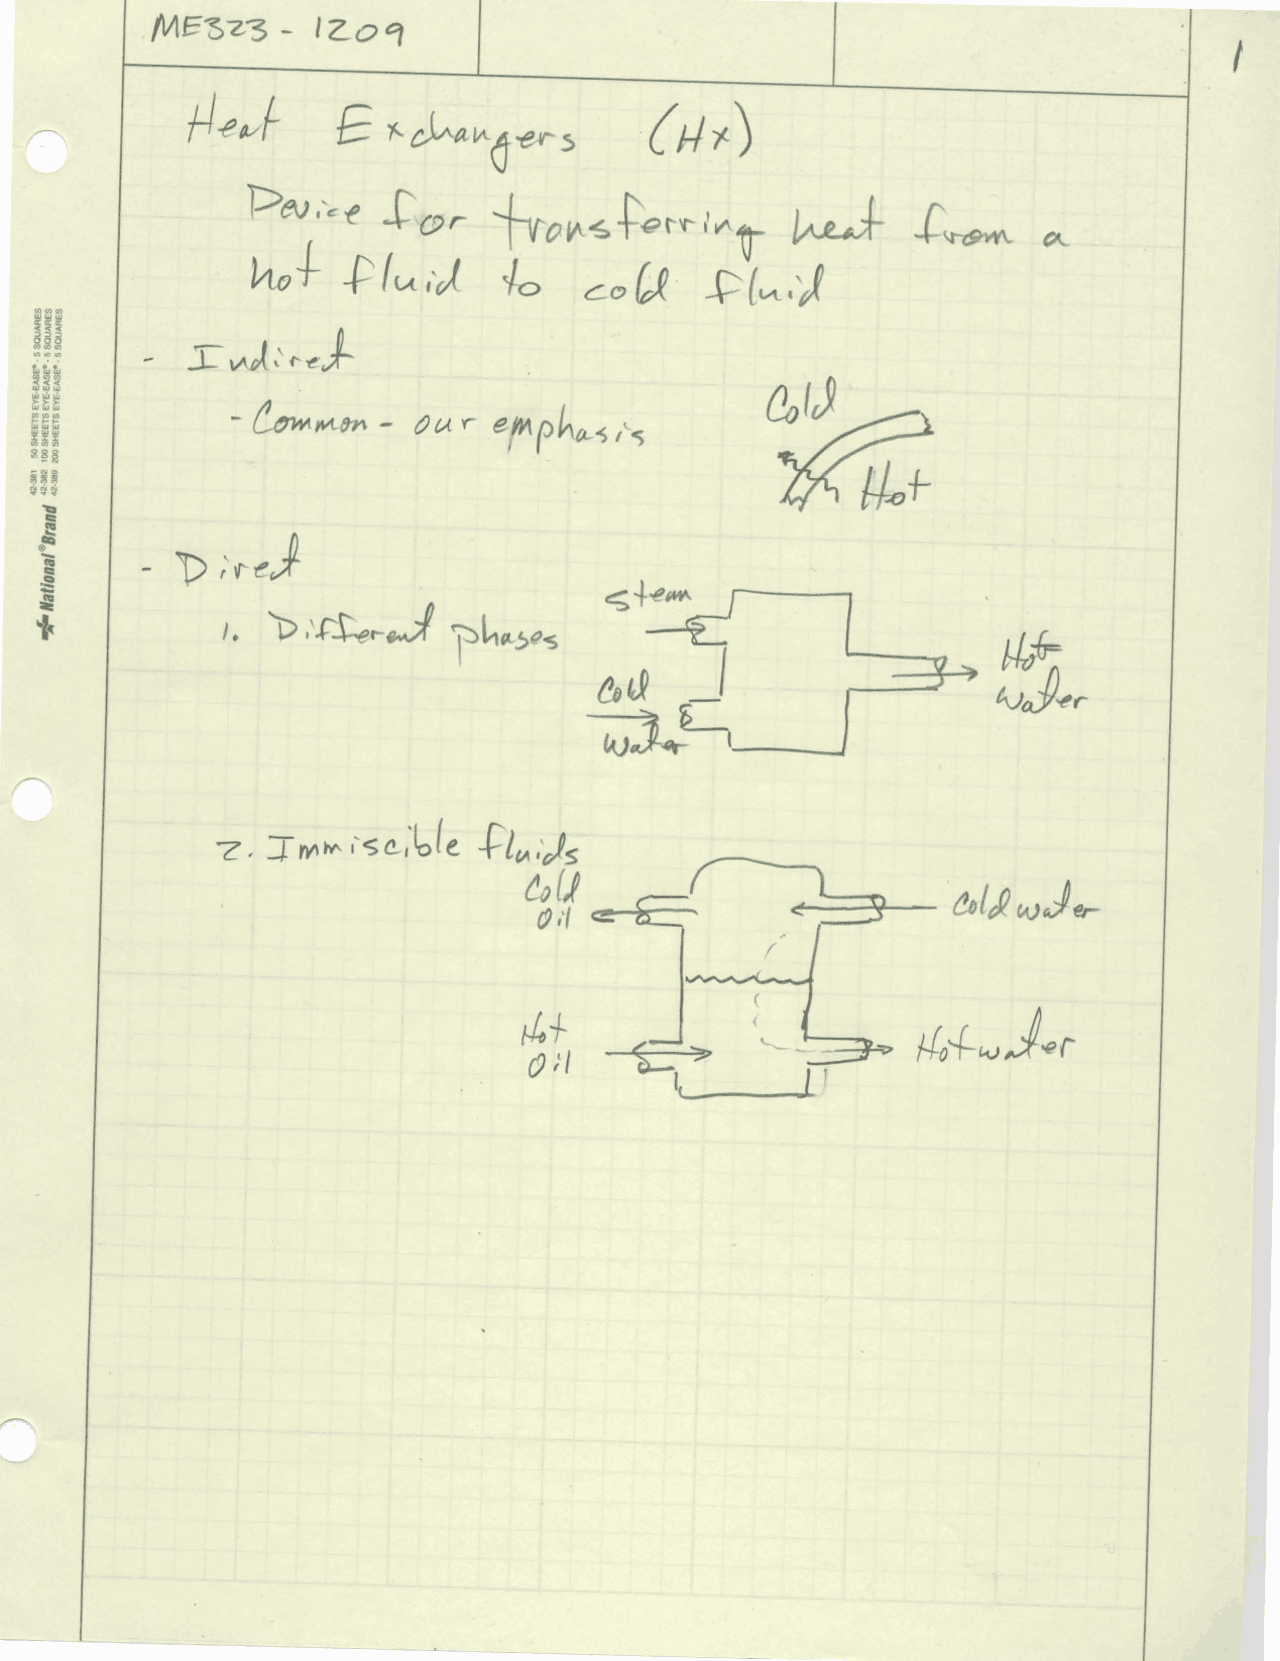 ME323 - 1209
1
Heat Exchangers (Hx)
Device for transferring heat from a
hot fluid to cold fluid
- Indirect
- Common - our emphasis
Cold
Hot
- Direct
1. Different phases
Steam
Cold
Water
Hot
Water
2. Immiscible fluids
Cold
Oil
Cold water
Hot
Oil
Hot water
42-381 50 SHEETS EYE-EASE® - 5 SQUARES
42-382 100 SHEETS EYE-EASE® - 5 SQUARES
42-389 200 SHEETS EYE-EASE® - 5 SQUARES
National®Brand